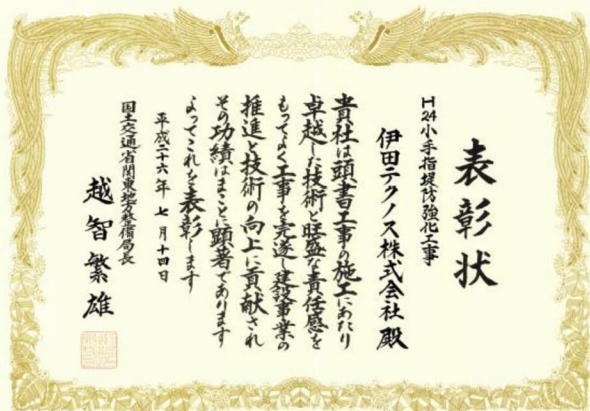 表彰状
H24小手指堤防強化工事
伊田テクノス株式会社 殿
貴社は頭書工事の施工にあたり
卓越した技術と旺盛な責任感を
もってよく工事を完遂し建設事業の
推進と技術の向上に貢献され
その功績はまことに顕著であります
よってこれを表彰します
平成二十六年七月十四日
国土交通省関東地方整備局長
越智繁雄